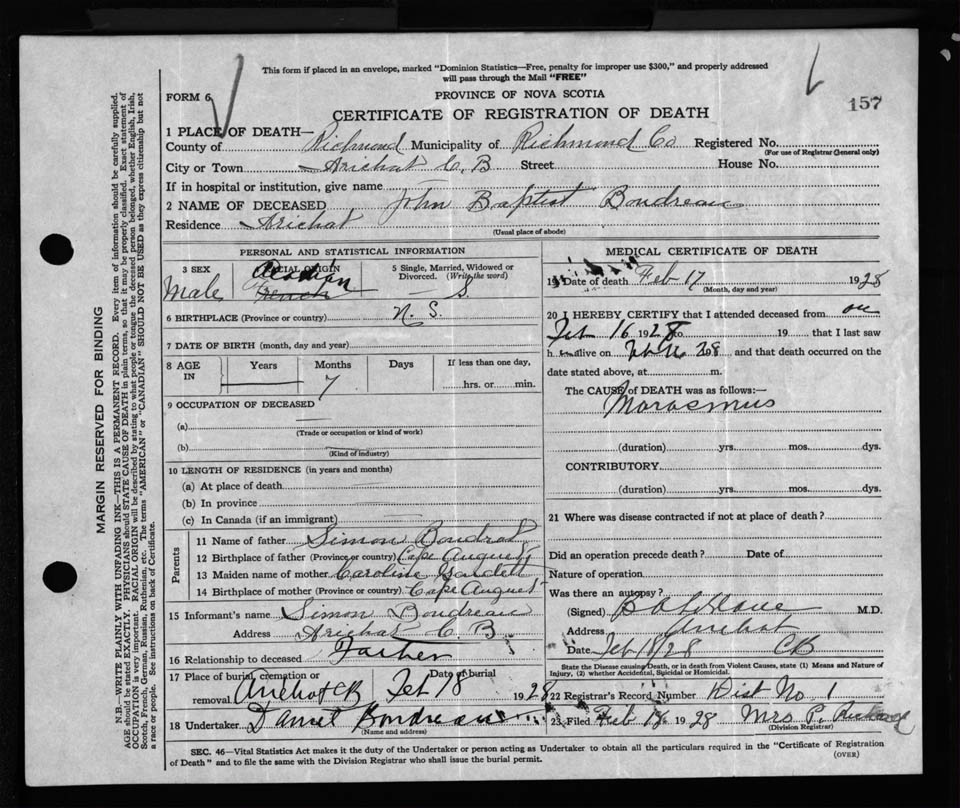 This form if placed in an envelope, marked "Dominion Statistics—Free, penalty for improper use $300," and properly addressed
will pass through the Mail "FREE"
FORM 6
PROVINCE OF NOVA SCOTIA
157
CERTIFICATE OF REGISTRATION OF DEATH
1 PLACE OF DEATH—
County of Richmond Municipality of Richmond Co Registered No.
(For use of Registrar General only)
City or Town Arichat C. B Street House No.
If in hospital or institution, give name
2 NAME OF DECEASED John Baptist Boudreau
Residence Arichat
(Usual place of abode)
MARGIN RESERVED FOR BINDING
N.B.—WRITE PLAINLY WITH UNFADING INK—THIS IS A PERMANENT RECORD. Every item of information should be carefully supplied.
AGE should be stated EXACTLY. PHYSICIANS should STATE CAUSE OF DEATH in plain terms, so that it may be properly classified. Exact statement of
OCCUPATION is very important. RACIAL ORIGIN will be described by stating to what people or tongue the deceased person belonged, whether English, Irish,
Scotch, French, German, Russian, Ruthenian, etc. The terms "AMERICAN" or "CANADIAN" SHOULD NOT BE USED as they express citizenship but not
a race or people. See instructions on back of Certificate.
PERSONAL AND STATISTICAL INFORMATION
3 SEX
Male
RACIAL ORIGIN
Acadian
French
5 Single, Married, Widowed or
Divorced. (Write the word)
S
6 BIRTHPLACE (Province or country) N. S.
7 DATE OF BIRTH (month, day and year)
8 AGE
IN
Years
Months
7
Days
If less than one day,
hrs. or min.
9 OCCUPATION OF DECEASED
(a)
(Trade or occupation or kind of work)
(b)
(Kind of industry)
10 LENGTH OF RESIDENCE (in years and months)
(a) At place of death
(b) In province
(c) In Canada (if an immigrant)
Parents
11 Name of father Simon Boudrot
12 Birthplace of father (Province or country) Cape August
13 Maiden name of mother Caroline
14 Birthplace of mother (Province or country) Cape August
15 Informant's name Simon Boudreau
Address Arichat C. B
16 Relationship to deceased Father
17 Place of burial, cremation or Date of burial
removal Arichat CB Feb 18 1928
18 Undertaker Daniel Boudreau
(Name and address)
MEDICAL CERTIFICATE OF DEATH
19 Date of death Feb 17 1928
(Month, day and year)
20 I HEREBY CERTIFY that I attended deceased from on
Feb 16 1928 to 19 that I last saw
h alive on 28 and that death occurred on the
date stated above, at m.
The CAUSE of DEATH was as follows:—
Marasmus
(duration) yrs. mos. dys.
CONTRIBUTORY
(duration) yrs. mos. dys.
21 Where was disease contracted if not at place of death?
Did an operation precede death? Date of
Nature of operation
Was there an autopsy?
(Signed) M.D.
Address Arichat
Feb 18/28 CB
State the Disease causing Death, or in death from Violent Causes, state (1) Means and Nature of
Injury, (2) whether Accidental, Suicidal or Homicidal.
22 Registrar's Record Number Dist No 1
23 Filed Feb 18 1928 Mrs P.
(Division Registrar)
SEC. 46—Vital Statistics Act makes it the duty of the Undertaker or person acting as Undertaker to obtain all the particulars required in the "Certificate of Registration
of Death" and to file the same with the Division Registrar who shall issue the burial permit.
(OVER)